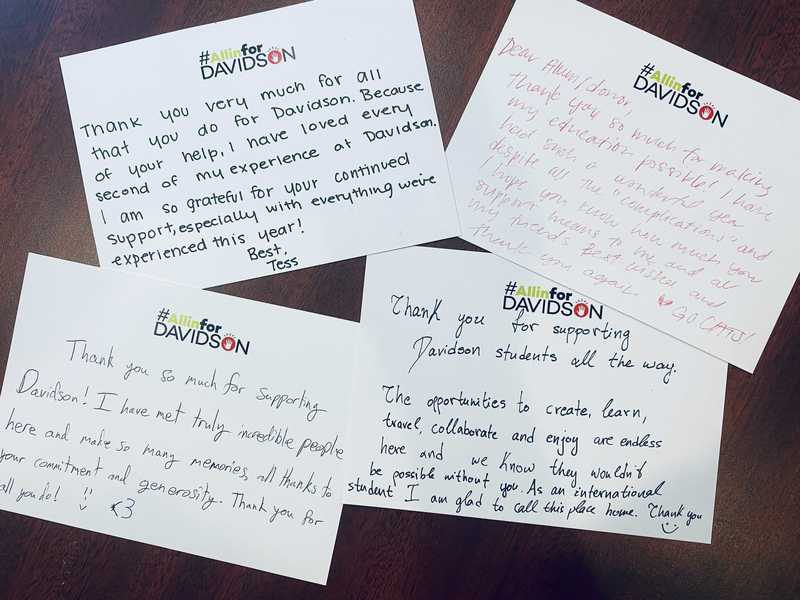 #Allinfor
DAVIDSON
Thank you very much for all
that you do for Davidson. Because
of your help, I have loved every
second of my experience at Davidson.
I am so grateful for your continued
support, especially with everything we've
experienced this year!
Best,
Tess
#Allinfor
DAVIDSON
Dear Alum/donor,
Thank you so much for making
my education possible! I have
had such a wonderful year
despite all the "complications" and
I hope you know how much your
support means to me and all
my friends. Best wishes and
thank you again. GO CATS!
#Allinfor
DAVIDSON
Thank you so much for supporting
Davidson! I have met truly incredible people
here and make so many memories, all thanks to
your commitment and generosity. Thank you for
all you do! :) <3
#Allinfor
DAVIDSON
Thank you for supporting
Davidson students all the way.
The opportunities to create, learn,
travel, collaborate and enjoy are endless
here and we know they wouldn't
be possible without you. As an international
student I am glad to call this place home. Thank you